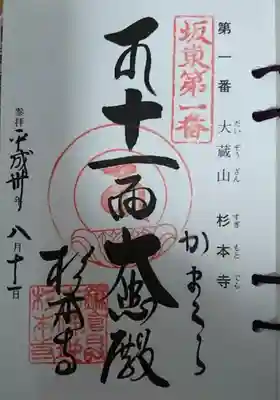 第一番 大蔵山 杉本寺
だいぞうざん すぎもとでら
坂東第一番
かまくら
十一面大悲殿
杉本寺
参拝 平成卅年
八月十一日